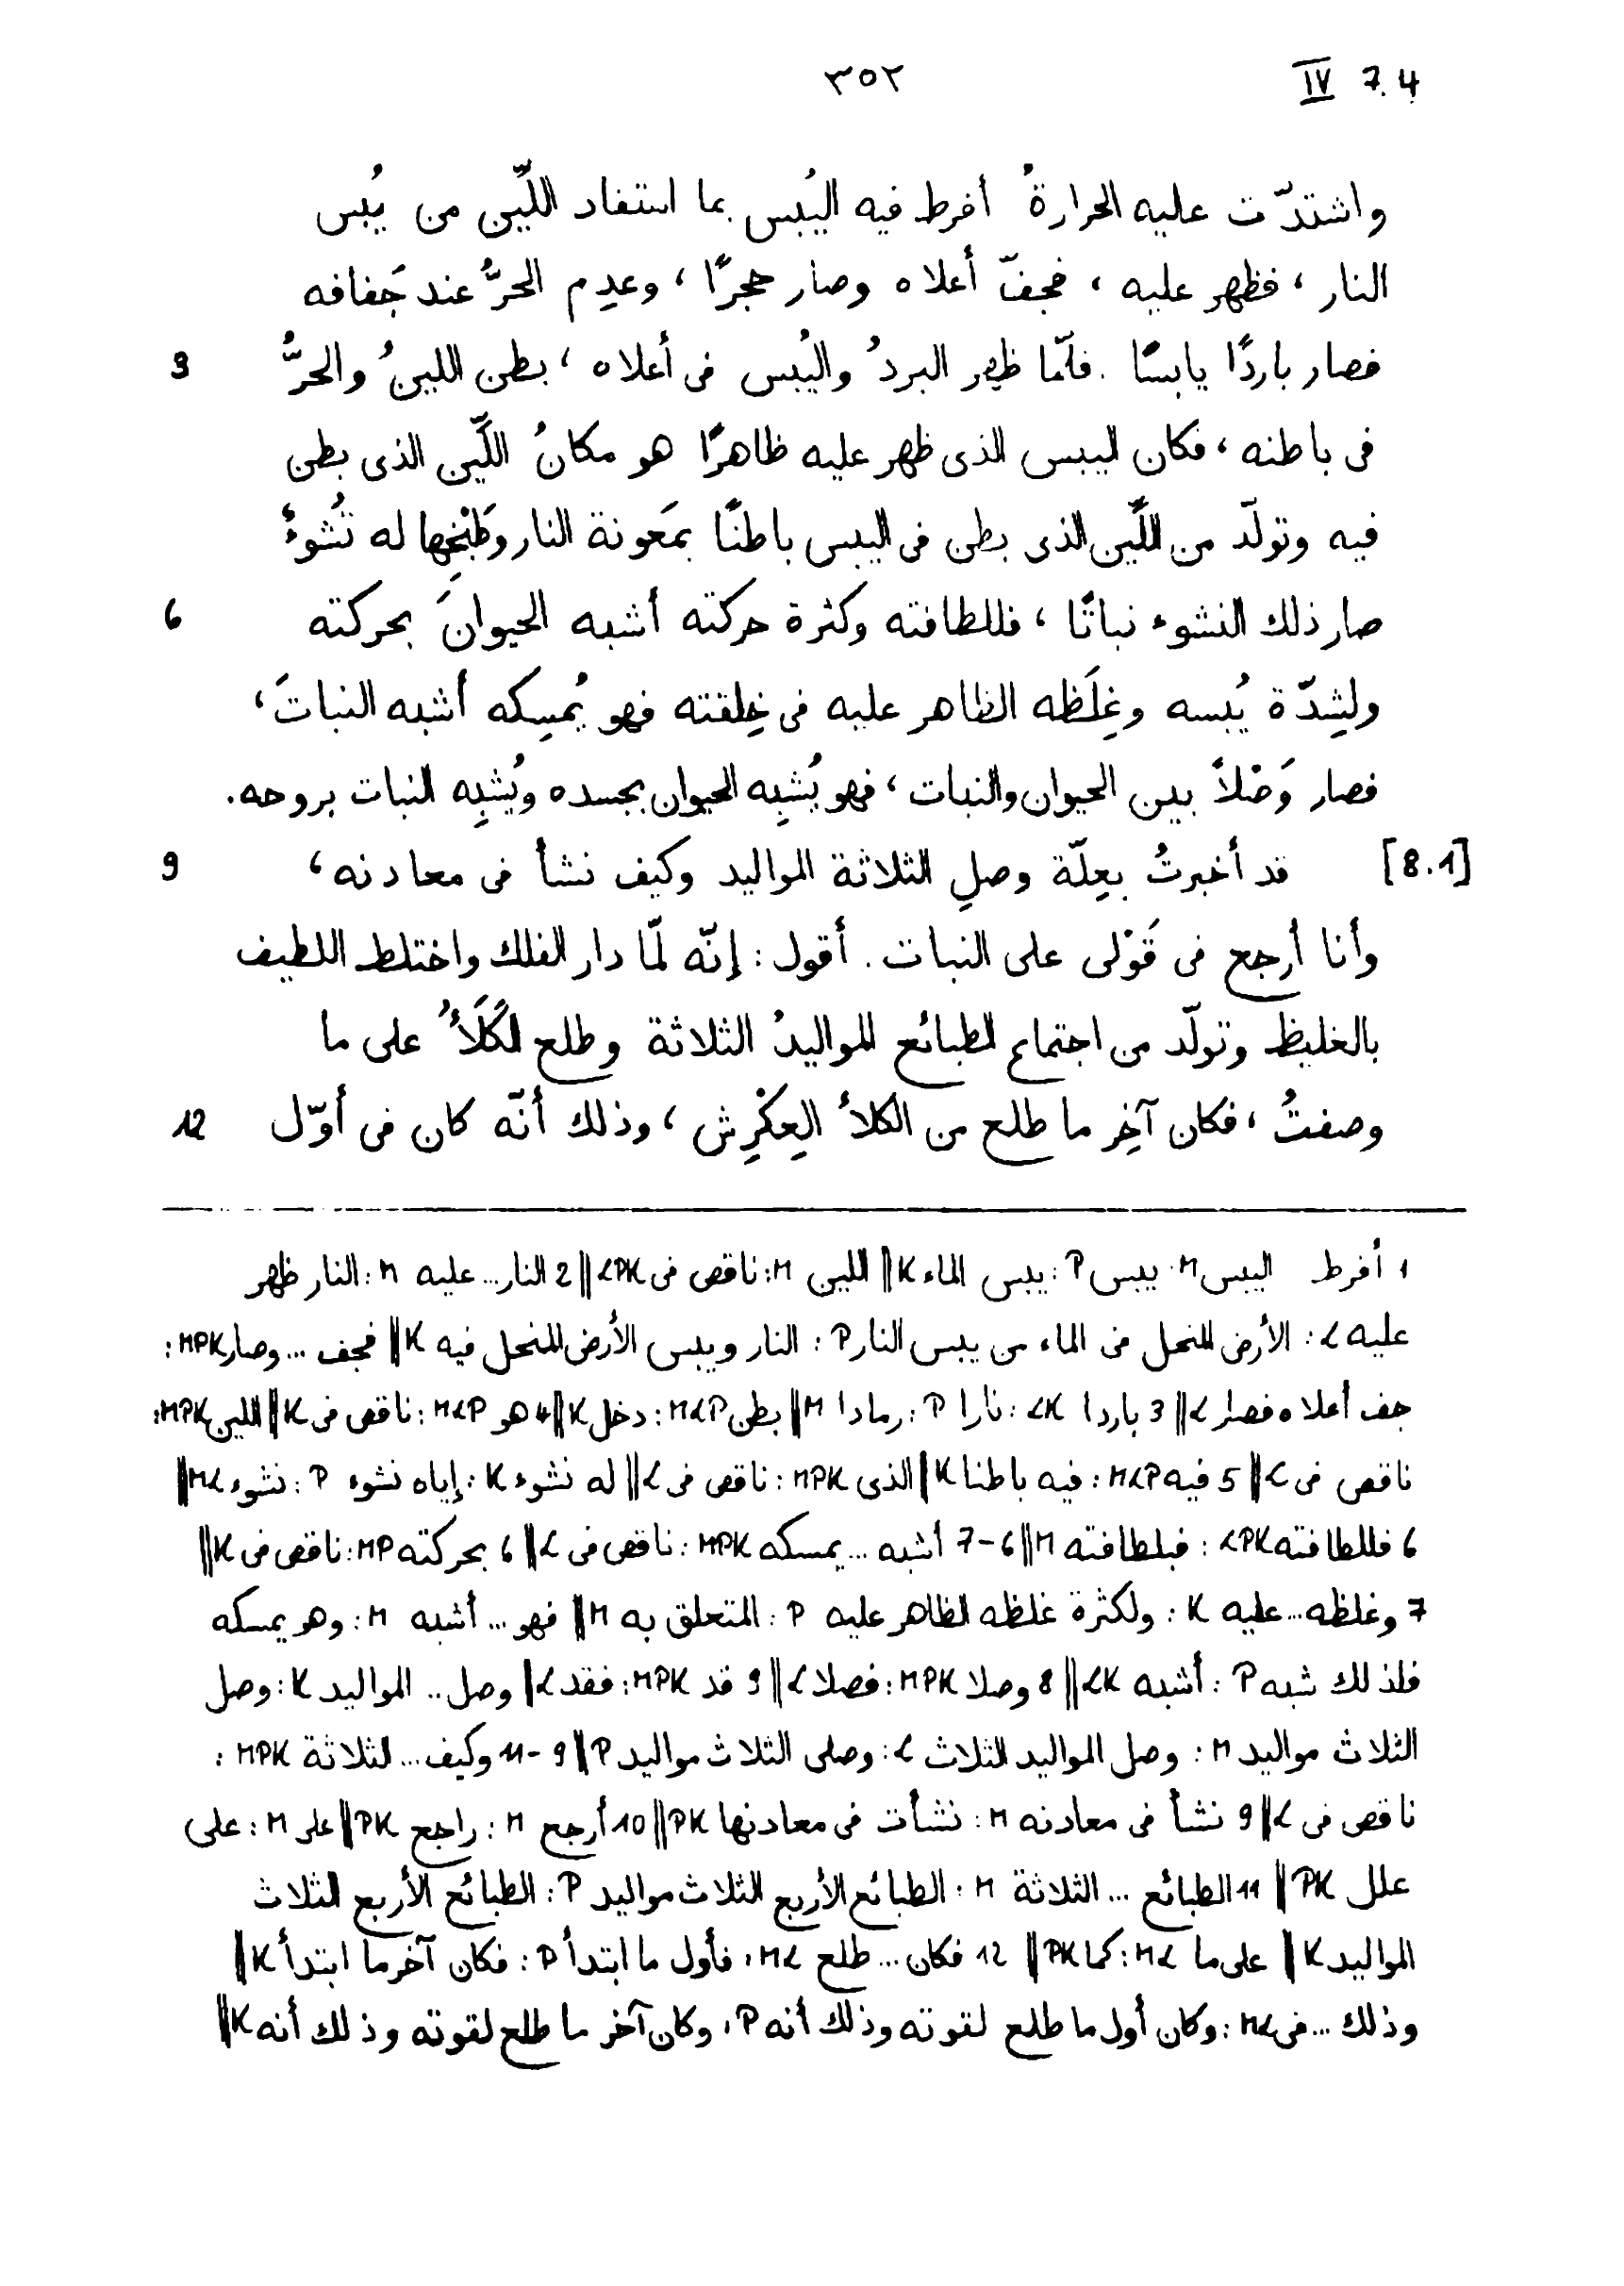 IV 7.4 ٣٥٢
واشتدّت عليه الحرارةُ أفرط فيه اليُبس بما استفاد اللَّين من يُبس
النار ، فظهر عليه ، فجفّ أعلاه وصار حجرًا ، وعدِم الحرُّ عند جَفافه
فصار باردًا يابسًا . فلمّا ظهر البردُ واليُبس فى أعلاه ، بطن اللينُ والحرُّ 3
فى باطنه ، فكان اليبس الذى ظهر عليه ظاهرًا هو مكانُ اللَّين الذى بطن
فيه وتولّد من اللَّين الذى بطن فى اليبس باطنًا بمَعونة النار وطَبْخِها له نُشوءٌ
صار ذلك النشوء نباتًا ، فللطافته وكثرة حركته أشبه الحيوانَ بحركته 6
ولشِدّة يُبسه وغِلَظه الظاهر عليه فى خِلقته فهو يُمسِكه أشبه النباتَ ،
فصار وَصْلاً بين الحيوان والنبات ، فهو يُشبِه الحيوان بجسده ويُشبِه النبات بروحه .
[8.1] قد أخبرتُ بعِلّة وصلِ الثلاثة المواليد وكيف نشأ فى معادنه ، 9
وأنا أرجع فى قَوْلى على النبات . أقول : إنّه لمّا دار الفلك واختلط اللطيف
بالغليظ وتولّد من اجتماع الطبائع المواليدُ الثلاثة وطلع الكَلَأُ على ما
وصفتُ ، فكان آخِر ما طلع من الكلأ العِكْرِش ، وذلك أنّه كان فى أوّل 12
1 أفرط اليبس M : يبس P : يبس الماء K || اللين M : ناقص فى LPK || 2 النار... عليه M : النار ظهر
عليه L : الأرض المنحل فى الماء من يبس النار P : النار ويبس الأرض المنحل فيه K || فجف ... وصار MPK :
جف أعلاه فصار L || 3 باردا LK : نارا P : رمادا M || بطن MLP : دخل K || 4 هو MLP : ناقص فى K || اللين MPK :
ناقص فى L || 5 فيه MLP : فيه باطنا K || الذى MPK : ناقص فى L || له نشوء K : إياه نشوء P : نشوء ML ||
6 فللطافته LPK : فبلطافته M || 6-7 أشبه ... يمسكه MPK : ناقص فى L || 6 بحركته MP : ناقص فى K ||
7 وغلظه... عليه K : ولكثرة غلظه الظاهر عليه P : المتعلق به M || فهو ... أشبه M : وهو يمسكه
فلذلك شبه P : أشبه LK || 8 وصلا MPK : فصلا L || 9 قد MPK : فقد L || وصل .. المواليد K : وصل
الثلاث مواليد M : وصل المواليد الثلاث L : وصلى الثلاث مواليد P || 9-11 وكيف ... الثلاثة MPK :
ناقص فى L || 9 نشأ فى معادنه M : نشأت فى معادنها PK || 10 أرجع M : راجع PK || على M : على
علل PK || 11 الطبائع ... الثلاثة M : الطبائع الأربع الثلاث مواليد P : الطبائع الأربع الثلاث
المواليد K || على ما ML : كما PK || 12 فكان ... طلع ML : فأول ما ابتدأ P : فكان آخر ما ابتدأ K ||
وذلك ... فى ML : وكان أول ما طلع لقوته وذلك أنه P : وكان آخر ما طلع لقوته وذلك أنه K ||